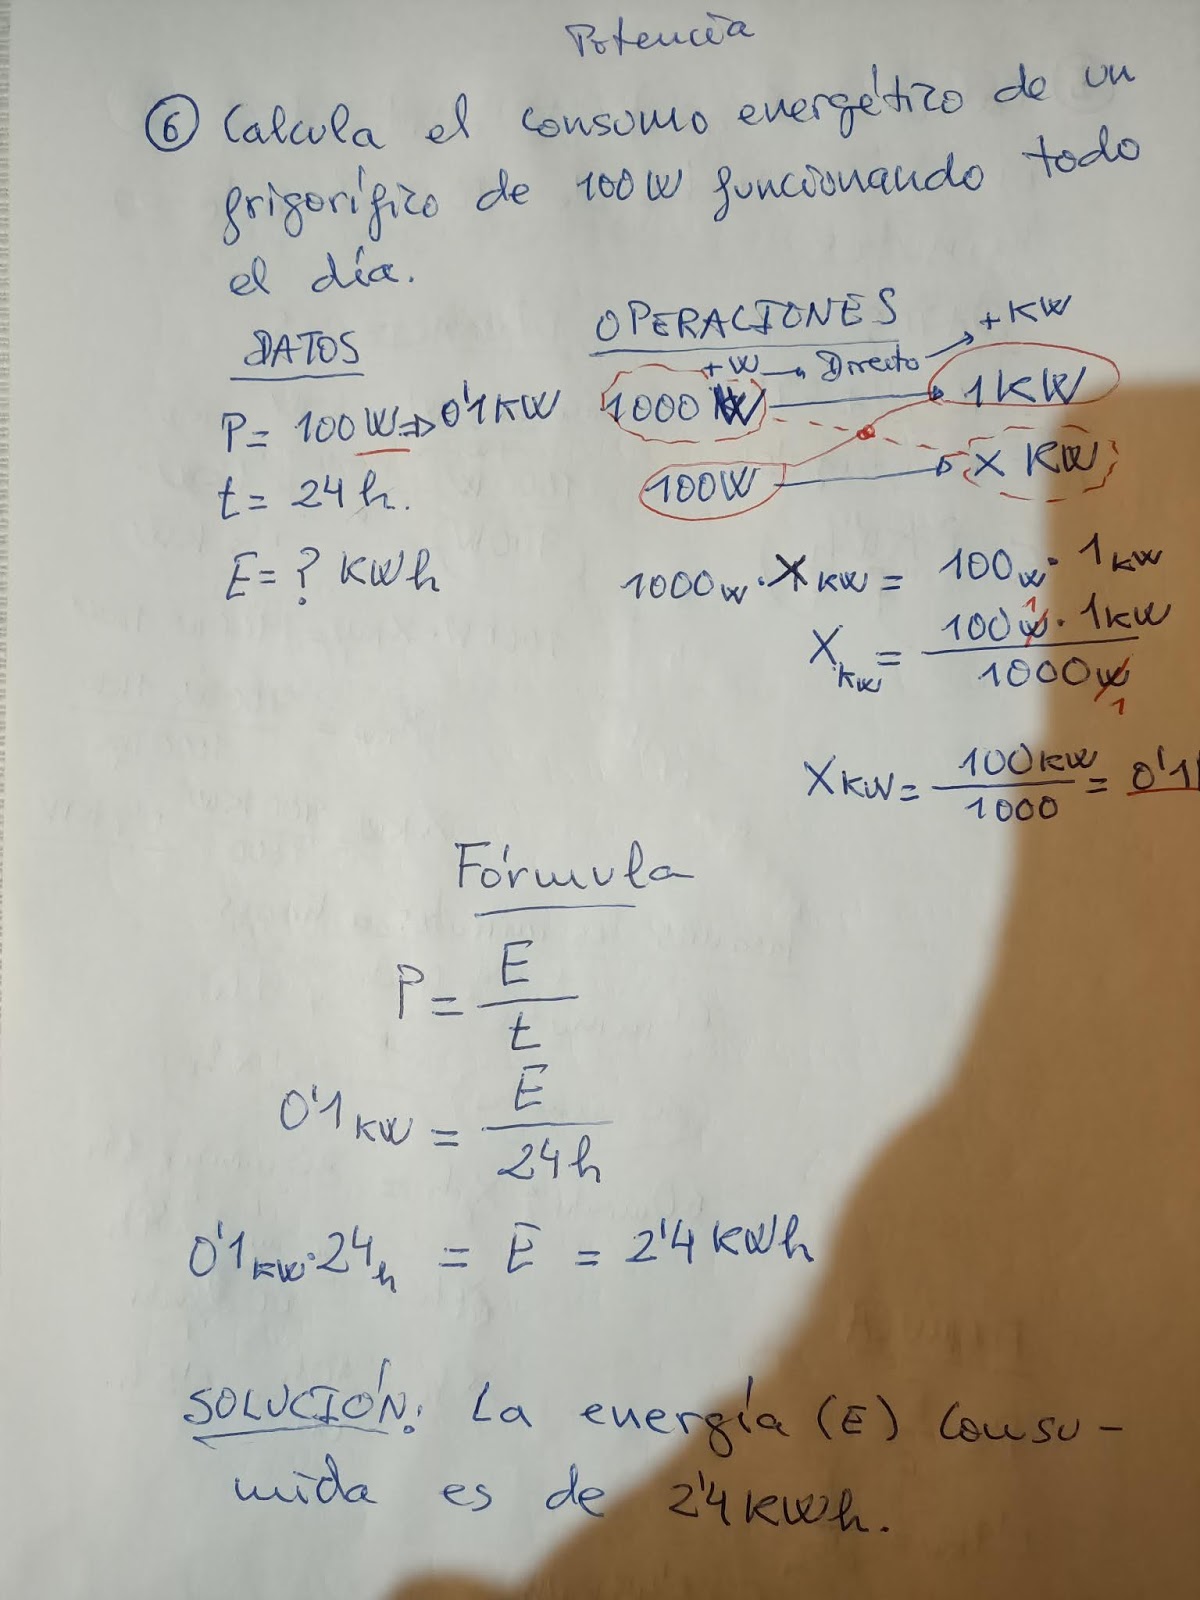 Potencia
6 Calcula el consumo energético de un
frigorífico de 100W funcionando todo
el día.
DATOS
P= 100W⇒0'1KW
t= 24h.
E=? KWh
OPERACIONES
+W → Directo → +KW
1000 W → 1KW
100W → X KW
1000W·XKW= 100W·1KW
XKW= 100W·1KW
1000W
1
1
XKW= 100KW = 0'1
1000
Fórmula
P= E
t
0'1KW = E
24h
0'1KW·24h = E = 2'4KWh
SOLUCIÓN: La energía (E) consu-
mida es de 2'4KWh.